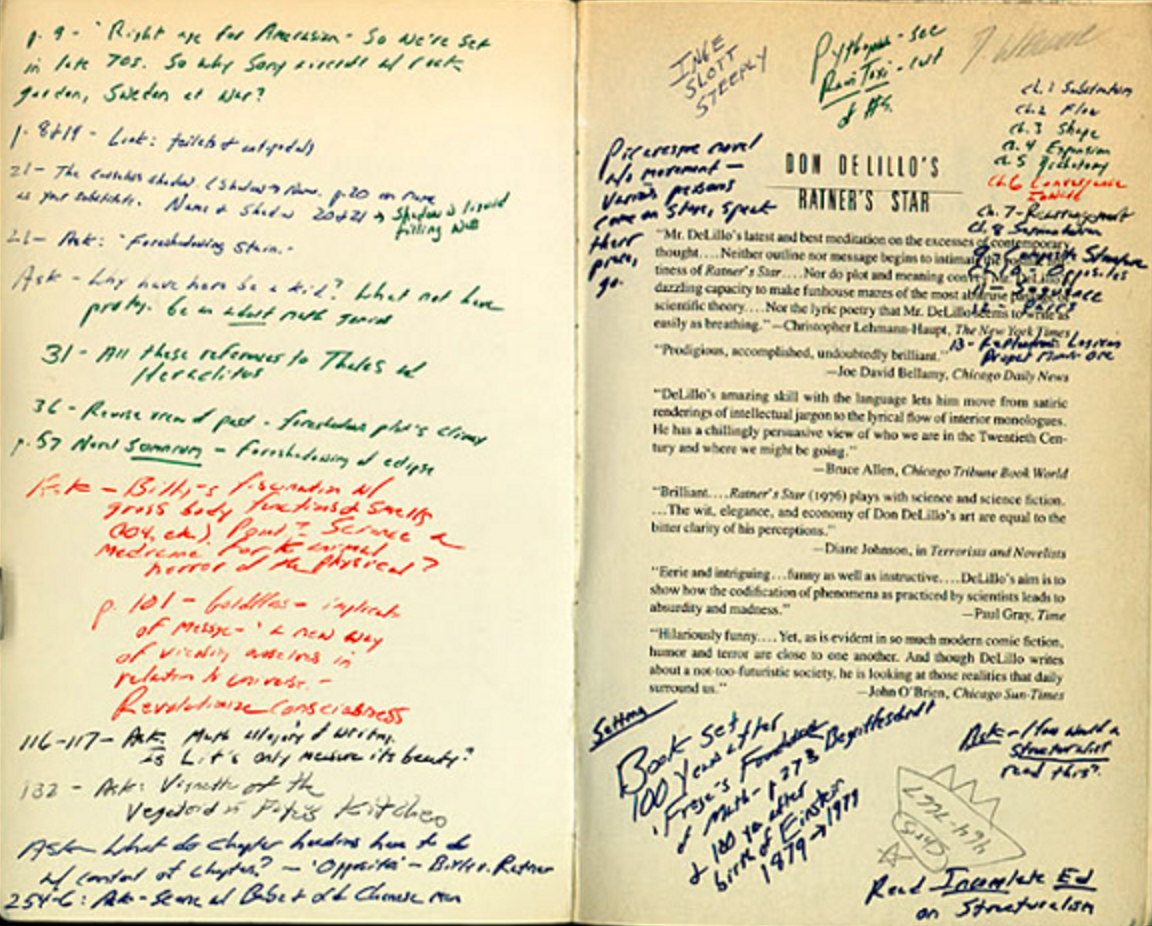 p. 9 - "Right age for Amerasian - So we're set
in late 70s. So why Sony aircraft w/ rock
garden, Sweden at war?
p. 8+19 - Link: toilets + antipodals
21 - The Shadow. (Shadow + Name. p. 20 on name
as your substitute. Name + Shadow 20+21 → Shadow is liquid
filling well
21 - Ask: "Foreshadowing Stain."
Ask - Why have hero be a kid? What not have
be an adult math genius
31 - All these references to Thales and
Heraclitus
36 - Revise view of past - foreshadows plot's climax
p. 57 Novel Somnium - Foreshadowing of eclipse
Ask - Billy's fascination w/
gross body functions + smells
(104, etc.). Point? Science a
medicine for the animal
horror of the physical?
p. 101 - Goldfloss - implicate
of message - "a new way
of viewing ourselves in
relation to universe. -
Revolutionize consciousness
116-117 - Ask. Math and writing.
Is Lit's only measure its beauty?
132 - Ask: Vignette of the
Kitchen
Ask - What do chapter headings have to do
w/ content of chapters? - 'Opposites' - Billy v. Ratner
254-6: Ask - Scene w/ old Chinese man
INGE
SLOTT
STEEPLY
Pythagoras - see
- cult
of #s.
D. Wallace
ch. 1 Substratum
ch. 2 Flow
ch. 3 Shape
ch. 4 Expansion
ch. 5 Dichotomy
ch. 6 Convergence
Inward
Ch. 7 - Rearrangement
Ch. 8 Segmentation
9 - Composite Structure
10 - Opposites
11 - Sequence
12 - Pairs
13 - Logicon
Project Minus One
Picaresque novel
w/o movement -
various persons
come on stage, speak
their
prose,
go.
DON DELILLO'S
RATNER'S STAR
"Mr. DeLillo's latest and best meditation on the excesses of contemporary
thought.... Neither outline nor message begins to intimate the
tiness of Ratner's Star.... Nor do plot and meaning convey Mr. DeLillo's
dazzling capacity to make funhouse mazes of the most abstruse
scientific theory.... Nor the lyric poetry that Mr. DeLillo seems to write as
easily as breathing."—Christopher Lehmann-Haupt, The New York Times
"Prodigious, accomplished, undoubtedly brilliant."
—Joe David Bellamy, Chicago Daily News
"DeLillo's amazing skill with the language lets him move from satiric
renderings of intellectual jargon to the lyrical flow of interior monologues.
He has a chillingly persuasive view of who we are in the Twentieth Cen-
tury and where we might be going."
—Bruce Allen, Chicago Tribune Book World
"Brilliant.... Ratner's Star (1976) plays with science and science fiction.
...The wit, elegance, and economy of Don DeLillo's art are equal to the
bitter clarity of his perceptions."
—Diane Johnson, in Terrorists and Novelists
"Eerie and intriguing...funny as well as instructive....DeLillo's aim is to
show how the codification of phenomena as practiced by scientists leads to
absurdity and madness."
—Paul Gray, Time
"Hilariously funny.... Yet, as is evident in so much modern comic fiction,
humor and terror are close to one another. And though DeLillo writes
about a not-too-futuristic society, he is looking at those realities that daily
surround us."
—John O'Brien, Chicago Sun-Times
Setting
Book set
100 years after
'Frege's Foundation
of Math - p. 273 Begriffsschrift
+ 100 yrs after
birth of Einstein
1879 → 1979
Ask - How would a
Structuralist
read this?
Chris
464-7667
Read Incomplete Ed
on Structuralism